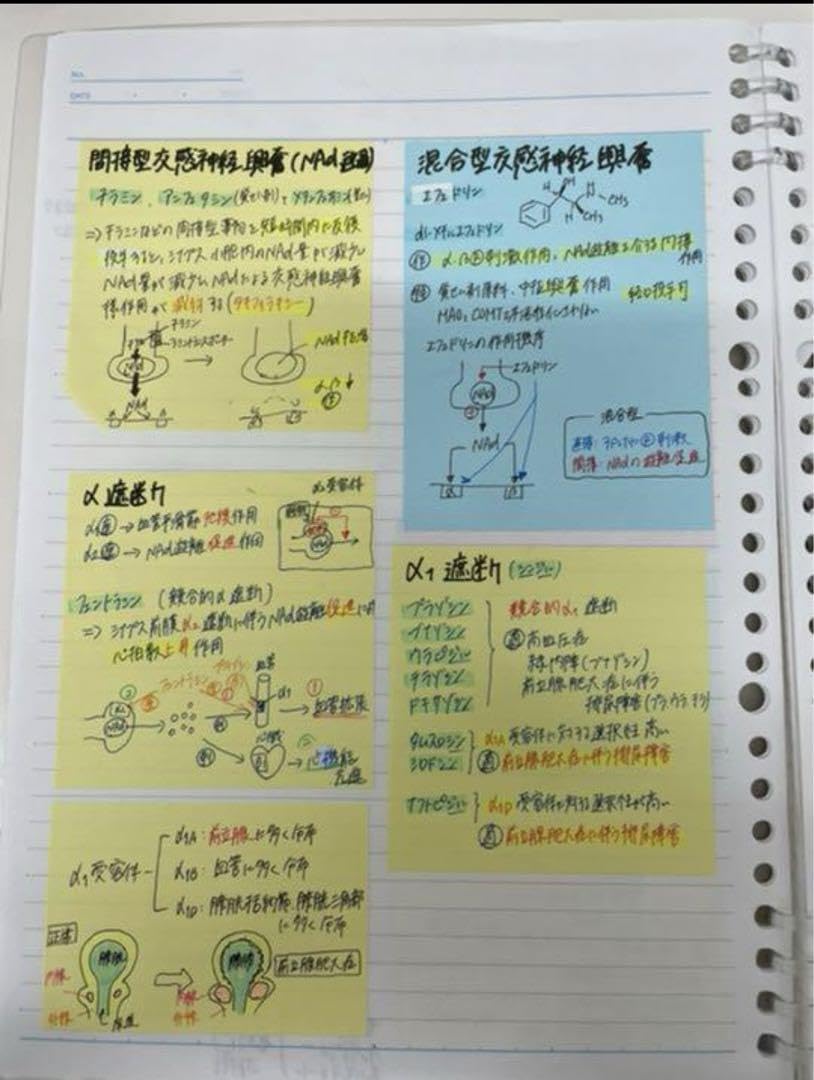 NO.
DATE
間接型交感神経興奮(NAd遊離)
チラミン、アンフェタミン(覚せい剤)、メタンフェタミン(覚せい剤)
⇒ チラミンなどの間接型薬物を短時間内に反復
投与すると、シナプス小胞内のNAd量が減少し
NAd量が減少し、NAdによる交感神経興奮
様作用が減弱する(タキフィラキシー)
チラミン
アミントランスポーター
NAd
NAd
NAd枯渇
α、β
混合型交感神経興奮
エフェドリン
H OH H CH₃
H CH₃
dl-メチルエフェドリン
作 α、β刺激作用、NAd遊離を介する間接
作用
覚せい剤原料、中枢興奮作用 経口投与可
MAOとCOMTで不活性化されない
エフェドリンの作用機序
エフェドリン
NAd
NAd
混合型
直接:
間接: NAdの遊離促進
α 遮断
α₁遮 → 血管平滑筋 弛緩作用
α₂遮 → NAd遊離 促進作用
α₂受容体
NAd
フェントラミン (競合的α遮断)
⇒ シナプス前膜α₂遮断に伴うNAd遊離促進
心拍数上昇作用
フェントラミン
血管
α₂
NAd
α₁
① 血管拡張
心臓
β₁
② 心機能
亢進
α₁ 遮断
プラゾシン
ブナゾシン
ウラピジル
テラゾシン
ドキサゾシン
競合的α₁遮断
適 高血圧症
緑内障(ブナゾシン)
前立腺肥大症に伴う
排尿障害(プラ、ウラ、テラ)
タムスロシン
シロドシン
α₁A 受容体に対する選択性 高い
適 前立腺肥大症に伴う排尿障害
ナフトピジル
α₁D 受容体に対する選択性が高い
適 前立腺肥大症に伴う排尿障害
α₁受容体
α₁A: 前立腺に多く分布
α₁B: 血管に多く分布
α₁D: 膀胱括約筋、膀胱三角部
に多く分布
正常
膀胱
内腺
外腺
尿道
膀胱
内腺
外腺
前立腺肥大症